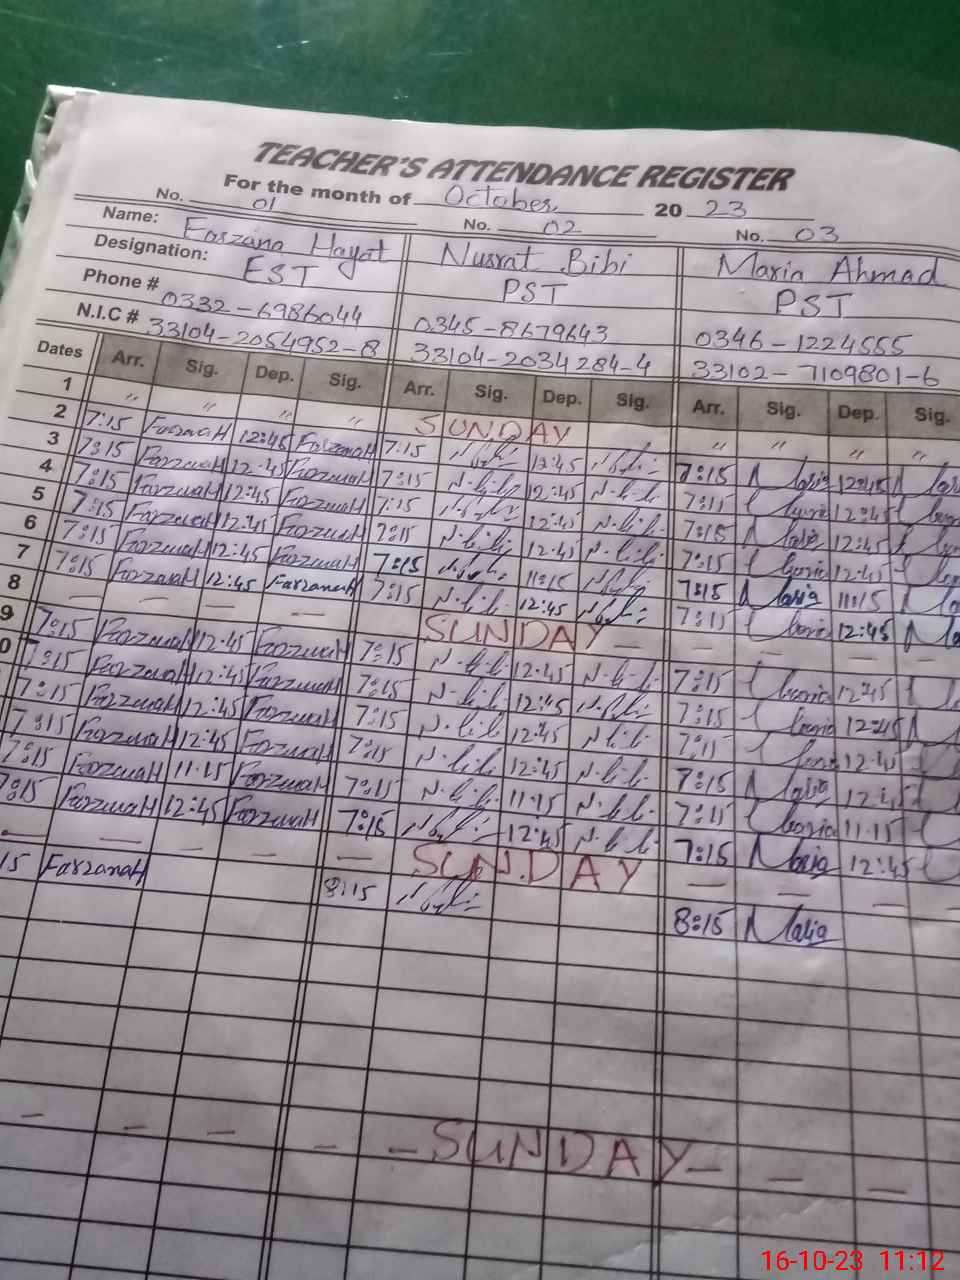 TEACHER'S ATTENDANCE REGISTER
For the month of October, 20 23
No. 01 No. 02 No. 03
Name: Farzana Hayat Nusrat Bibi Maria Ahmad
Designation: EST PST PST
Phone # 0332-6986044 0345-8679643 0346-1224555
N.I.C # 33104-2054952-8 33104-2034284-4 33102-7109801-6
Dates Arr. Sig. Dep. Sig. Arr. Sig. Dep. Sig. Arr. Sig. Dep. Sig.
1 " " " " SUNDAY " " " "
2 7:15 FarzanaH 12:45 FarzanaH 7:15 12:45 7:15 Maria 12:45
3 7:15 FarzanaH 12:45 FarzanaH 7:15 N.b.b. 12:45 N.b.b. 7:15 12:45
4 7:15 FarzanaH 12:45 FarzanaH 7:15 12:45 N.b.b. 7:15 Maria 12:45
5 7:15 FarzanaH 12:45 FarzanaH 7:15 N.b.b. 12:45 N.b.b. 7:15 12:45
6 7:15 FarzanaH 12:45 FarzanaH 7:15 11:15 7:15 Maria 11:15
7 7:15 FarzanaH 12:45 FarzanaH 7:15 N.b.b. 12:45 7:15 12:45
8 — — — — SUNDAY — — — —
9 7:15 FarzanaH 12:45 FarzanaH 7:15 N.b.b. 12:45 N.b.b. 7:15 12:45
0 7:15 FarzanaH 12:45 FarzanaH 7:15 N.b.b. 12:45 7:15 12:45
7:15 FarzanaH 12:45 FarzanaH 7:15 N.b.b. 12:45 N.b.b. 7:15 12:45
7:15 FarzanaH 12:45 FarzanaH 7:15 N.b.b. 12:45 N.b.b. 7:15 Maria 12:45
7:15 FarzanaH 11:15 FarzanaH 7:15 N.b.b. 11:15 N.b.b. 7:15 11:15
7:15 FarzanaH 12:45 FarzanaH 7:15 12:45 N.b.b. 7:15 Maria 12:45
— — — — — SUNDAY — — — —
15 FarzanaH 8:15 8:15 Maria
— — — — — SUNDAY — — —
16-10-23 11:12